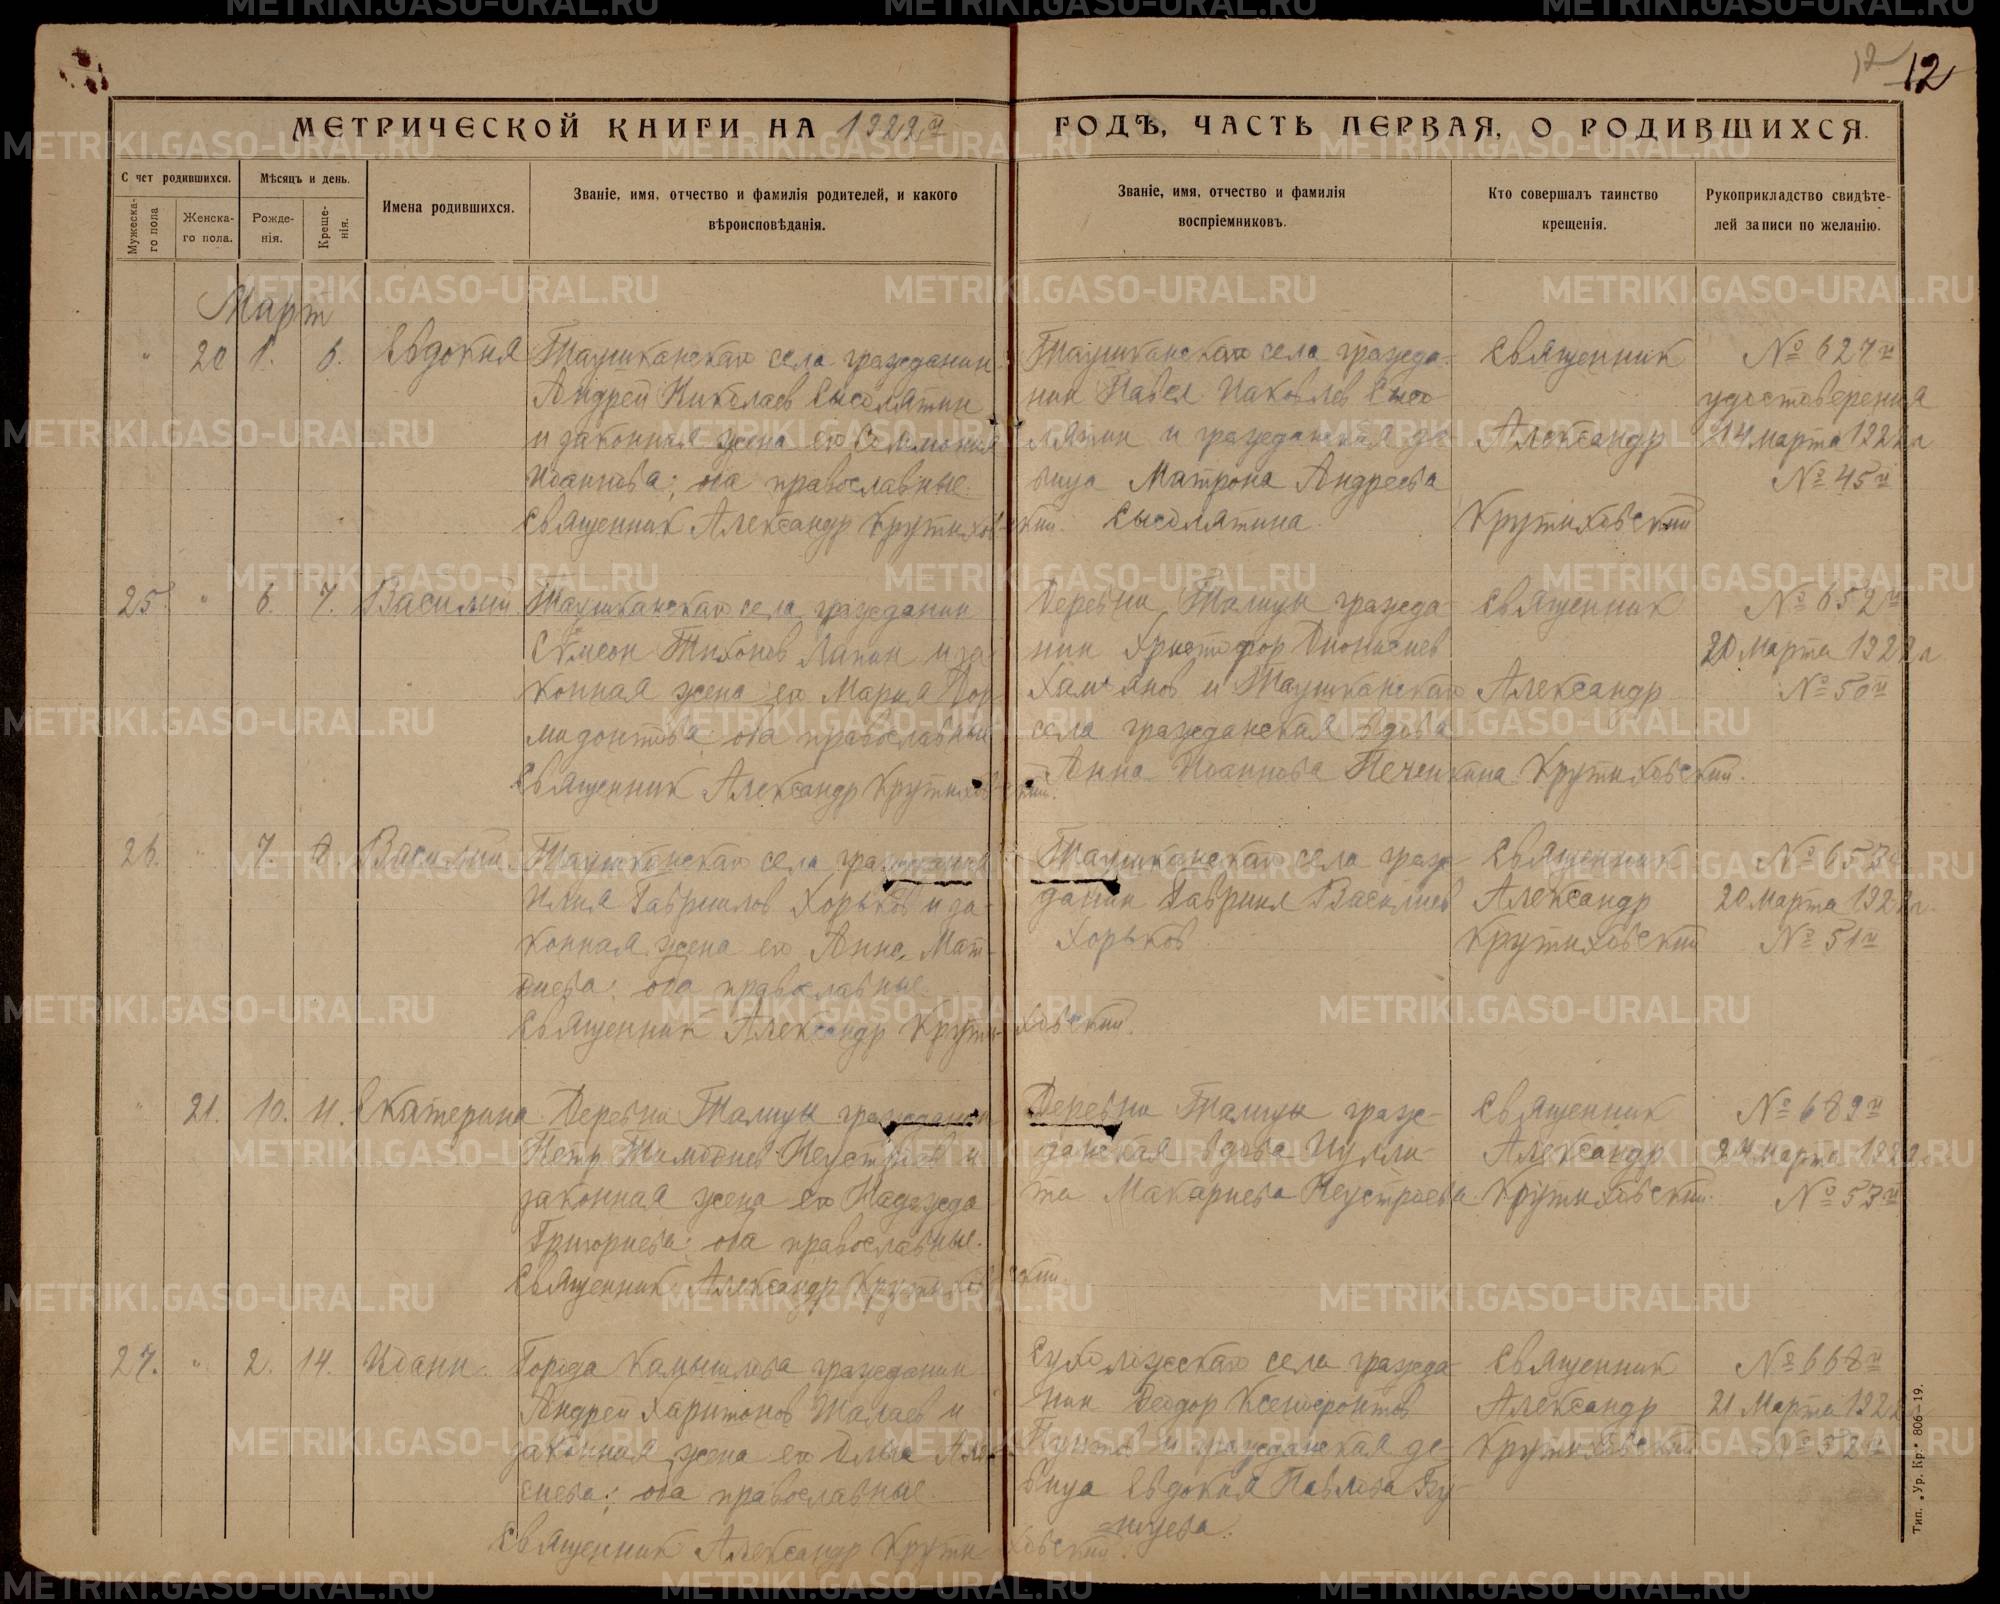 12 12
МЕТРИЧЕСКОЙ КНИГИ НА 1922й ГОДЪ, ЧАСТЬ ПЕРВАЯ, О РОДИВШИХСЯ.
С чет родившихся.
Мужеска-го пола
Женска-го пола.
Мѣсяцъ и день.
Рожде-нія.
Креще-нія.
Имена родившихся.
Званіе, имя, отчество и фамилія родителей, и какого
вѣроисповѣданія.
Званіе, имя, отчество и фамилія
воспріемниковъ.
Кто совершалъ таинство
крещенія.
Рукоприкладство свидѣте-
лей записи по желанію.
Март
" 20 1. 6. Евдокия
Таушканскаго села гражданин
Андрей Николаев Сысолятин
и законная жена его Соломония
Иоаннова; оба православные.
Священник Александр Крутиховский.
Таушканскаго села гражда-
нин Павел Иаковлев Сысо
лятин и гражданская де-
вица Матрона Андреева
Сысолятина
Священник
Александр
Крутиховский
№ 627й
удостоверения
14 марта 1922 г
№ 45й
25. " 6. 7. Василий
Таушканскаго села гражданин
Симеон Тихонов Лапин и за
конная жена его Мария Дор
мидонтова; оба православные
Священник Александр Крутиховский.
Деревни Талицы гражда-
нин Христофор Дионисиев
и Таушканскаго
села гражданская вдова
Анна Иоаннова Печенкина
Священник
Александр
Крутиховский.
№ 652й
20 марта 1922 г
№ 50й
26. " 7. 8. Василий
Таушканскаго села гражданин
Илия Гавриилов Хорьков и за-
конная жена его Анна Мат-
феева; оба православные.
Священник Александр Крутиховский.
Таушканскаго села граж-
данин Гавриил Василиев
Хорьков
Священник
Александр
Крутиховский
№ 653й
20 марта 1922 г.
№ 51й
" 21. 10. 11. Екатерина
Деревни Талицы гражданин
Петр Тимофиев Неустроев и
законная жена его Надежда
Григориева; оба православные.
Священник Александр Крутиховский.
Деревни Талицы граж-
данская вдова Иулли-
та Макариева Неустроева.
Священник
Александр
Крутиховский.
№ 689й
24 марта 1922 г.
№ 53й
27. " 2. 14. Иоанн.
Города Камышлова гражданин
Андрей Харитонов Шалаев и
законная жена его Ольга Алек
сиева; оба православные.
Священник Александр Крутиховский.
Сухоложскаго села гражда-
нин Феодор Ксенофонтов
и гражданская де-
вица Евдокия Павлова
Священник
Александр
Крутиховский
№ 668й
21 Марта 1922 г
№ 52й
Тип. „Ур. Кр." 806—19.
METRIKI.GASO-URAL.RU